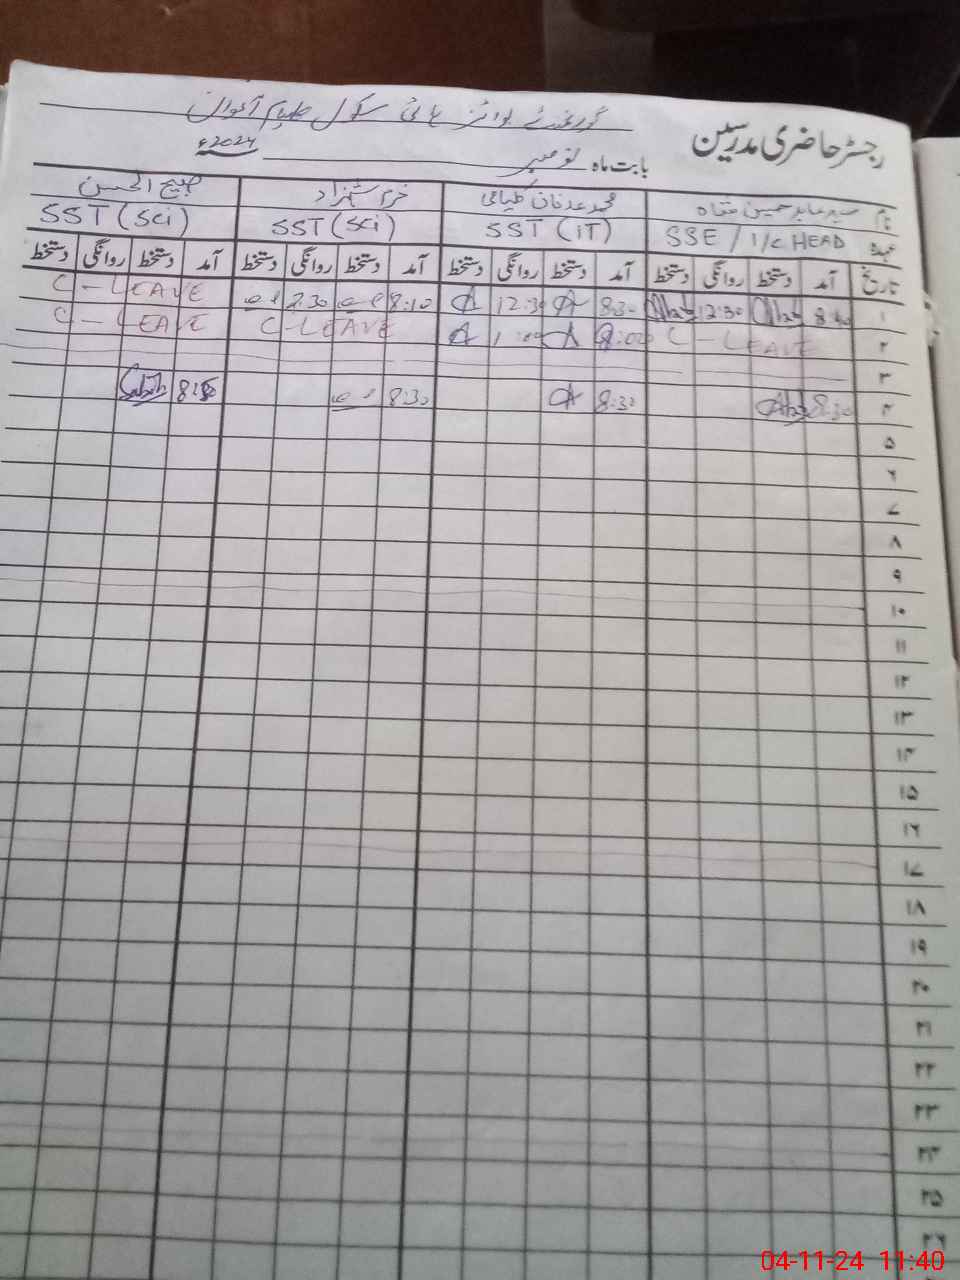 رجسٹر حاضری مدرسین
گورنمنٹ بوائز ہائی سکول اعوان
بابت ماہ نومبر 2024ء
نام سید عابد حسین شاہ محمد عدنان خرم شہزاد صبیح الحسن
عہدہ SSE / I/C HEAD SST (IT) SST (Sci) SST (Sci)
تاریخ آمد دستخط روانگی دستخط آمد دستخط روانگی دستخط آمد دستخط روانگی دستخط آمد دستخط روانگی دستخط
۱ 8:40 12:30 8:30 12:30 8:10 2:30 C-LEAVE
۲ C-LEAVE C-LEAVE C-LEAVE
۳
۴ 8:30 8:30 8:30
۵
۶
۷
۸
۹
۱۰
۱۱
۱۲
۱۳
۱۴
۱۵
۱۶
۱۷
۱۸
۱۹
۲۰
۲۱
۲۲
۲۳
۲۴
۲۵
۲۶
04-11-24 11:40